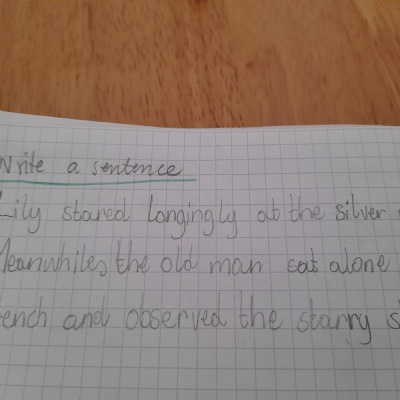 Write a sentence
Lily stared longingly at the silver
Meanwhiles, the old man sat alone
ench and observed the starry s